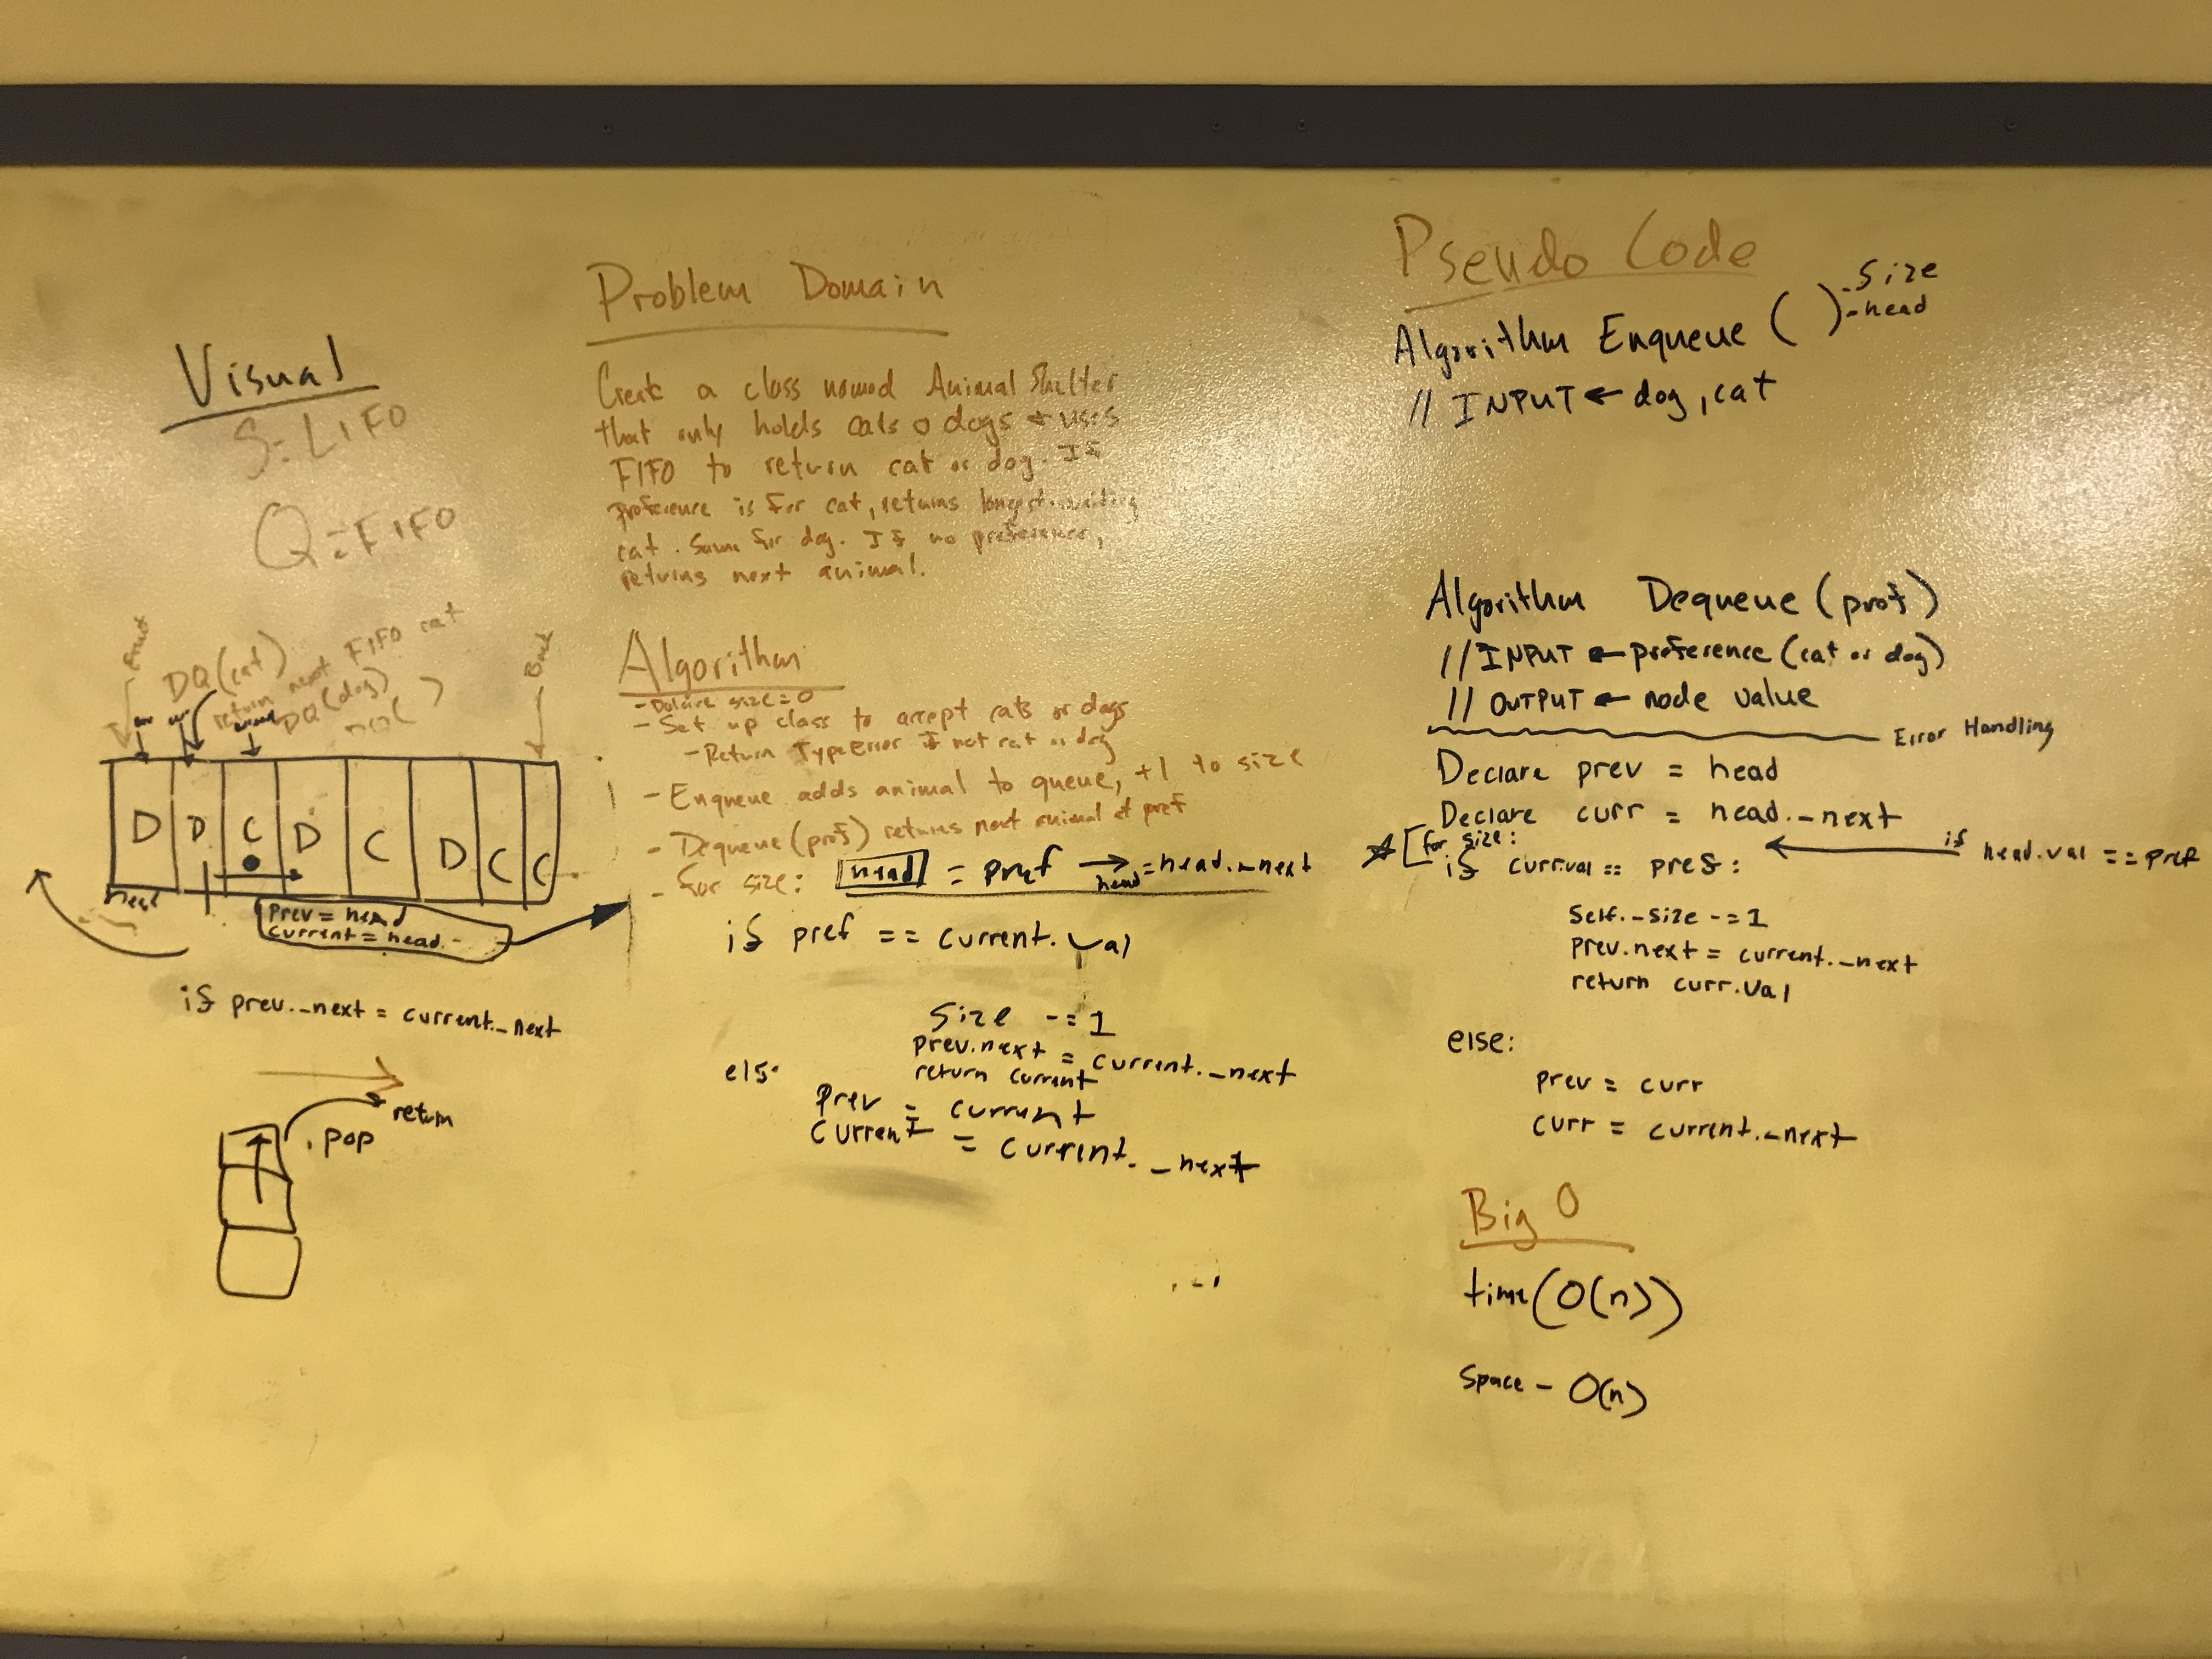 Visual
S=LIFO
Q=FIFO
Front
DQ(cat)
return next FIFO cat
DQ(dog)
DQ( )
Back
D D C D C D C C
head
prev = head
current = head.-
if prev._next = current._next
return
.pop
Problem Domain
Create a class named Animal Shelter
that only holds cats o dogs + uses
FIFO to return cat or dog. If
preference is for cat, returns longest-waiting
cat. Same for dog. If no preference,
returns next animal.
Algorithm
- Declare size = 0
- Set up class to accept cats or dogs
- Return TypeError if not cat or dog
- Enqueue adds animal to queue, +1 to size
- Dequeue(pref) returns next animal of pref
- for size: head = pref → head = head._next
if pref == current.val
size -= 1
prev.next = current._next
return current
else:
prev = current
current = current._next
Pseudo Code
Algorithm Enqueue ( )
-size
-head
// INPUT ← dog, cat
Algorithm Dequeue (pref)
// INPUT ← preference (cat or dog)
// OUTPUT ← node value
Error Handling
Declare prev = head
Declare curr = head._next
for size:
if curr.val == pref: ← if head.val == pref
self._size -= 1
prev.next = current._next
return curr.val
else:
prev = curr
curr = current._next
Big O
time (O(n))
space - O(n)